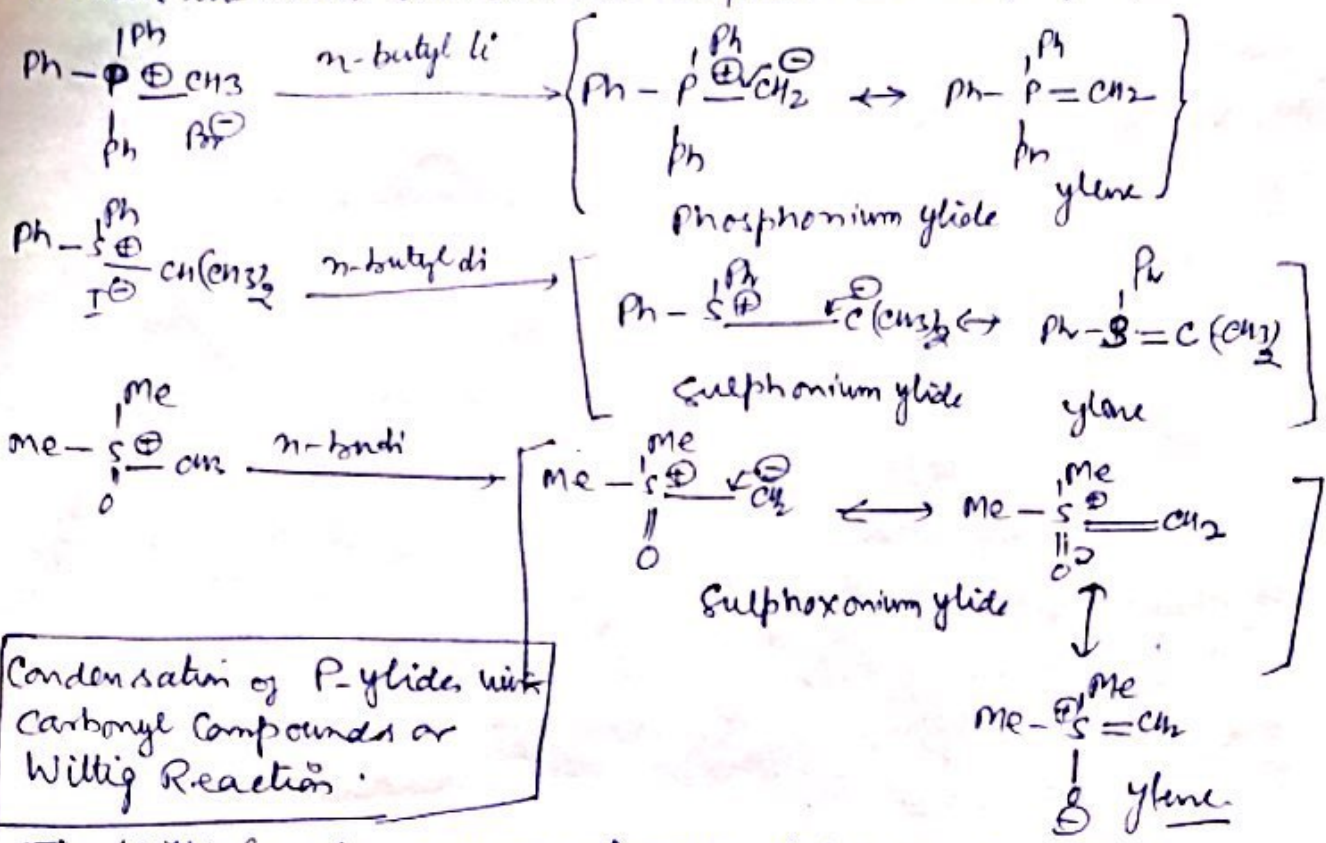 Ph
Ph – P ⊕ CH3
Ph Br⊖
n-butyl li
Ph
Ph – P ⊕ CH2 ⊖ ↔ Ph – P = CH2
Ph
Ph
Ph ylene
Phosphonium ylide
Ph
Ph – S ⊕ CH(CH3)2
I⊖
n-butyl li
Ph
Ph – S ⊕ C⊖(CH3)2 ↔ Ph – S = C(CH3)2
Ph
Sulphonium ylide ylene
Me
Me – S ⊕ CH3
O
n-buli
Me
Me – S ⊕ CH2 ⊖ ↔ Me – S ⊕ = CH2
O
Me
O
Sulphoxonium ylide
Me
Me – ⊕S = CH2
O⊖ ylene
Condensation of P-ylides with
Carbonyl Compounds or
Wittig Reaction.